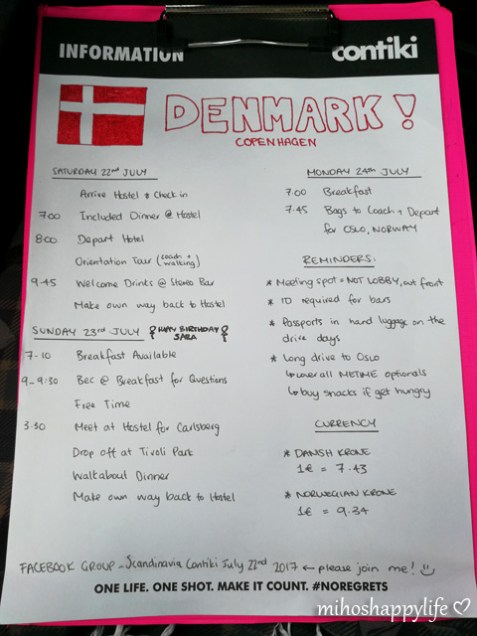 INFORMATION
contiki
DENMARK!
COPENHAGEN
SATURDAY 22nd JULY
Arrive Hostel + Check in
7:00 Included Dinner @ Hostel
8:00 Depart Hotel
Orientation Tour (coach + walking)
9.45 Welcome Drinks @ Stereo Bar
Make own way back to Hostel
SUNDAY 23rd JULY HAPPY BIRTHDAY SARA
7-10 Breakfast Available
9-9:30 Bec @ Breakfast for Questions
Free Time
3.30 Meet at Hostel for Carlsberg
Drop off at Tivoli Park
Walkabout Dinner
Make own way back to Hostel
MONDAY 24th JULY
7.00 Breakfast
7.45 Bags to Coach + Depart
for OSLO, NORWAY
REMINDERS:
* Meeting spot = NOT LOBBY, out front
* ID required for bars
* Passports in hand luggage on the
drive days
* Long drive to Oslo
↳ cover all METIME optionals
↳ buy snacks if get hungry
CURRENCY
* DANISH KRONE
1€ = 7.43
* NORWEGIAN KRONE
1€ = 9.34
FACEBOOK GROUP - Scandinavia Contiki July 22nd 2017 ← please join me!
ONE LIFE. ONE SHOT. MAKE IT COUNT. #NOREGRETS
mihoshappylife ♡